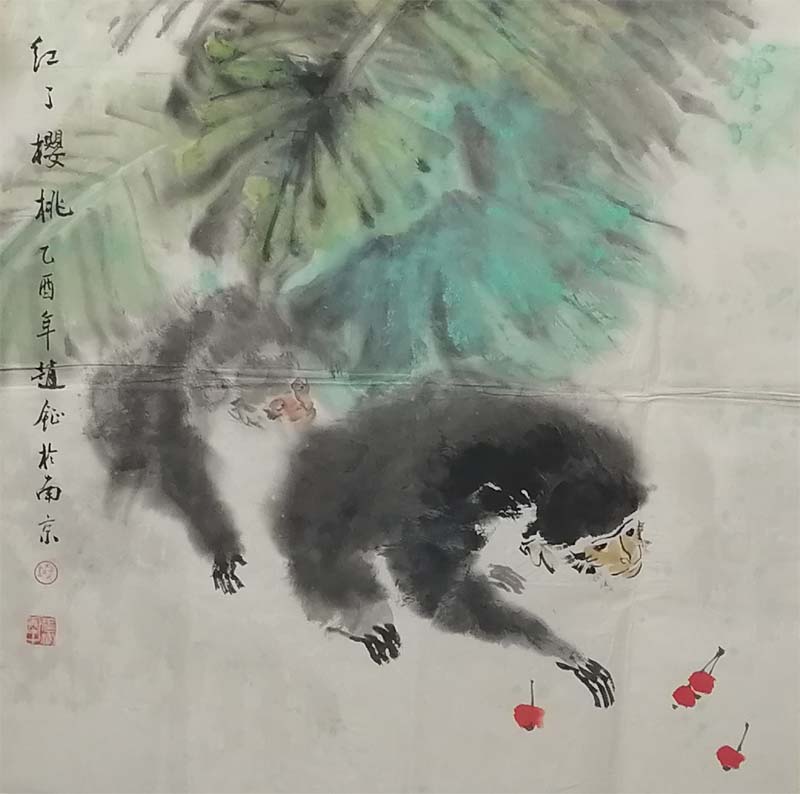 红了樱桃乙酉年趙鉦於南京